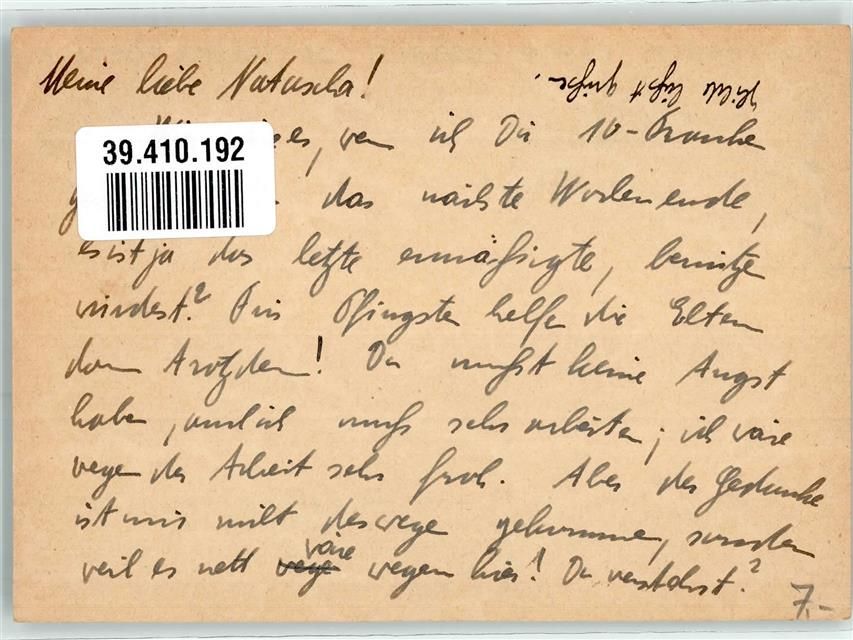 Meine liebe Natascha!
Hilde läßt grüßen.
es, wenn ich Dir 10-Franken
das nächste Wochenende,
es ist ja das letzte ermäßigte, benütze
würdest? Für Pfingsten helfen die Eltern
dann trotzdem! Du mußt keine Angst
haben, auch ich muß sehr arbeiten; ich wäre
wegen der Arbeit sehr froh. Aber der Gedanke
ist mir nicht deswegen gekommen, sondern
weil es nett wäre wegen hier! Du verstehst?
39.410.192
7.-